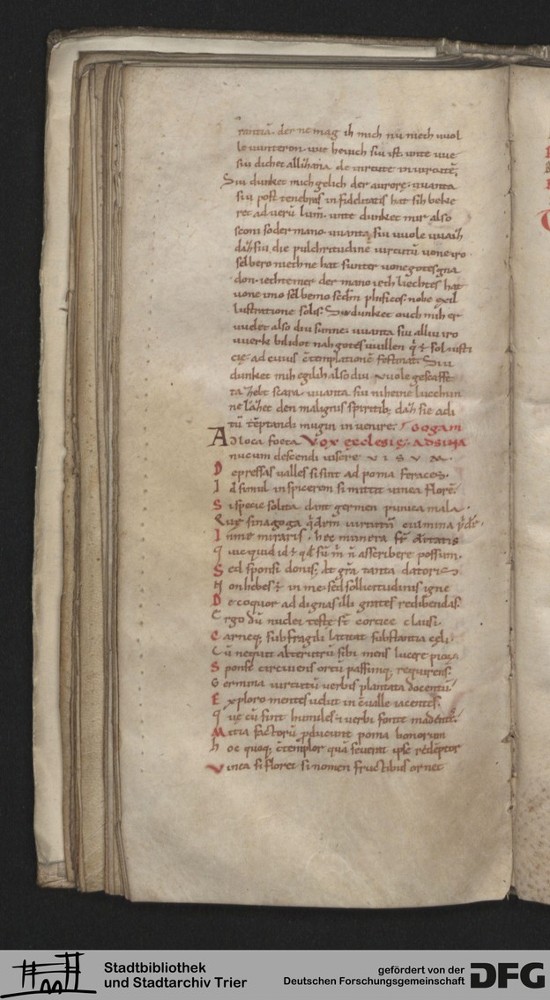 rantiam. der ne mag ih mich nu nieth uuol
le uunteron. wie heuich siu ist. unte uue
siu dichet alliharia de uirtute in uirtutem.
Siu dunket mich gelich der aurorę. uuanta
siu post tenebras infidelitatis hat sih beke
ret ad uerū lum̄. unte dunket mir also
sconi so der mano. uuanta siu uuole uuaiz
daz siu die pulchritudinē uirtutū uone iro
selbero nieth ne hat sunter uone gotes gna
don. ieth
uone imo selbemo scdm̄ phisicos. nobe ex
lustratione solis. Siu dunket ouch mih er
uuelet also diu sunne. uuanta siu alliu iro
uuerk bilidot nah gotes uuillen
cię ad cuius c̄templationē festinat. Siu
dunket mih egilih also diu wole gescaffe
ta scara. uuanta siu niheine lucchun
ne lazet den malignis spiritib; daz sie adi
tū tēptandi mugin in uenire.
Ad loca foeta Vox ecclesię ad sinagogam
nucum descendi uisere VISVM
Depressas ualles si sint ad poma feraces.
Id simul inspicerem si mittat uinea flore.
Si specie solita dant germen punica mala.
Quę sinagoga
In me miraris. hec munera
Quicquid id ē
Sed sponsi donis. et grā tanta datoris
Non hebes ē in me sed sollicitudinis igne
Decoquor ad dignas illi grates redibendas.
Ergo dū nuclei teste sē cortice clausi.
Carneq; sub fragili latitat substantia
Cū nequit alterutrū sibi mens lucere
Sponse circuiens ortū passimq; requirens.
Germina uirtutū uerbis plantata docentū
Exploro mentes uelut in cualle iacentes.
Quę cū sint humiles & uerbi fonte madentes.
Mitia factorū pducunt poma bonorum
Hoc quoq; c̄templor quā seuerit ipse redēptor
Vinea si floret si nomen fructibus ornet
Stadtbibliothek
und Stadtarchiv Trier
gefördert von der
Deutschen Forschungsgemeinschaft
DFG